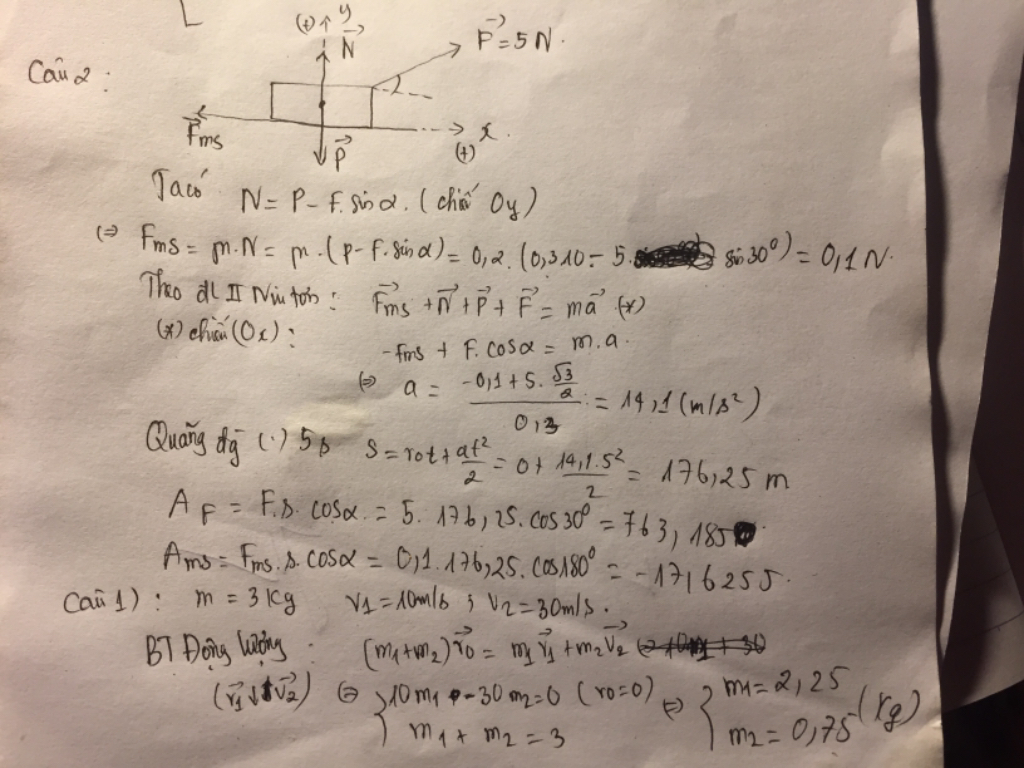 (+) y
N
P = 5 N.
Câu 2 :
Fms
x
(+)
P
Ta có N = P - F. sin α. ( chiếu Oy)
(=> Fms = μ.N = μ.(P - F. sin α) = 0,2. (0,3.10 - 5. sin 30⁰) = 0,1 N.
Theo đl II Niu tơn : Fms + N + P + F = ma (*)
(*) chiếu (Ox) :
-Fms + F. cos α = m.a.
(=> a = (-0,1 + 5. √3/2) / 0,3 = 14,1 (m/s²)
Quãng đg (.) 5s S = vot + at²/2 = 0 + 14,1.5²/2 = 176,25 m
A F = F.s. cos α. = 5. 176,25. cos 30⁰ = 763,185
Ams = Fms. s. cos α = 0,1. 176,25. cos 180⁰ = -17,625 J.
Câu 1) : m = 3 Kg v1 = 10m/s ; v2 = 30m/s.
BT Động lượng : (m1+m2) vo = m1 v1 + m2 v2
(v1 ↓↑ v2) (=> { 10 m1 - 30 m2 = 0 (vo=0) (=> { m1 = 2,25 (kg)
m1 + m2 = 3 m2 = 0,75